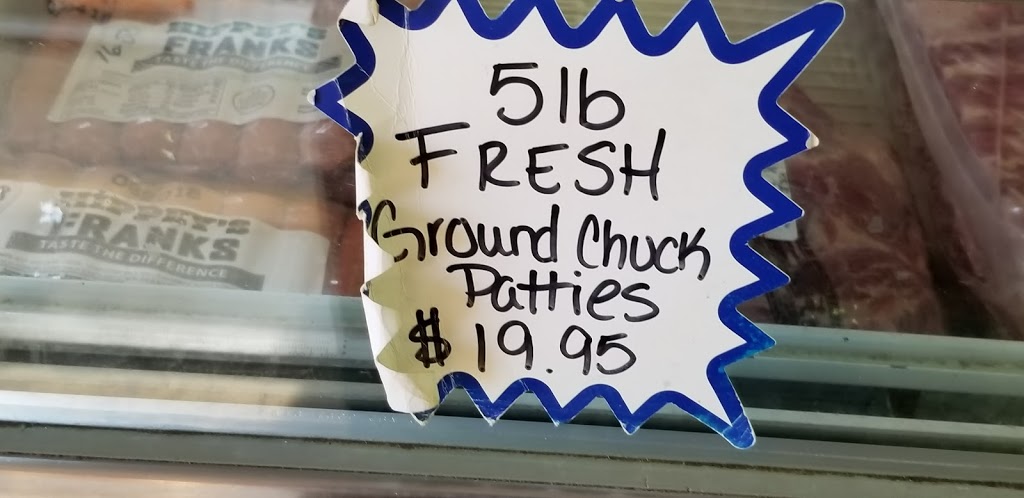 5lb
FRESH
Ground Chuck
Patties
$19.95
FRANKS
TASTE THE DIFFERENCE
FRANKS
TASTE THE DIFFERENCE